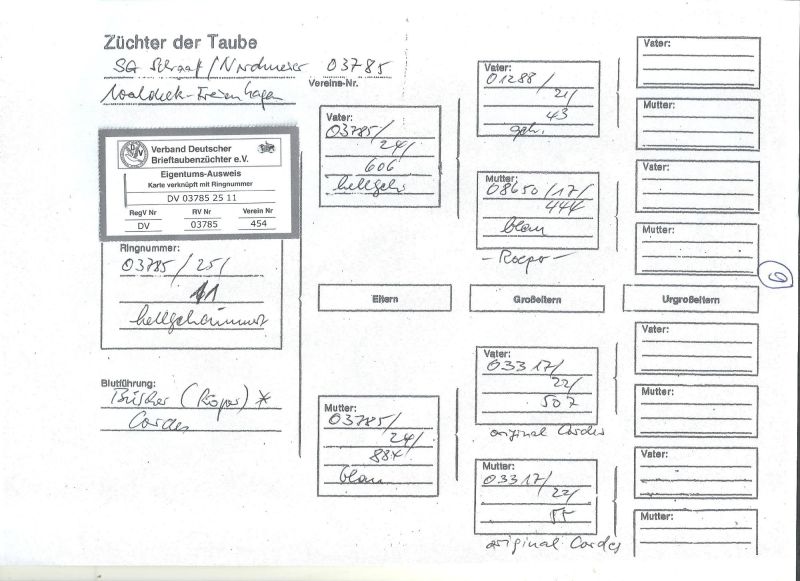 Züchter der Taube
SG Schraaf/Nordmeier 03785
Vereins-Nr.
Waldeck-Freienhagen
Verband Deutscher
Brieftaubenzüchter e.V.
Eigentums-Ausweis
Karte verknüpft mit Ringnummer
DV 03785 25 11
RegV Nr RV Nr Verein Nr
DV 03785 454
Ringnummer:
03785/25/
11
hellgehämmert
Blutführung:
Büscher (Röper) *
Cordes
Vater:
03785/
24/
606
hellgeh
Eltern
Mutter:
03785/
24/
884
blau
Vater:
01288/
21/
43
geh.
Mutter:
08650/17/
444
blau
- Roeper -
Großeltern
Vater:
03317/
22/
507
original Cordes
Mutter:
03317/
22/
55
original Cordes
Vater:
Mutter:
Vater:
Mutter:
6
Urgroßeltern
Vater:
Mutter:
Vater:
Mutter: